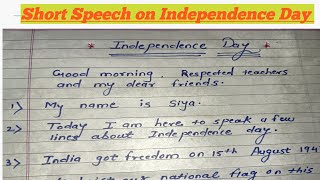 Short Speech on Independence Day
* Independence Day *
Good morning. Respected teachers
and my dear friends.
1) My name is Siya.
2) Today I am here to speak a few
lines about Independence day.
3) India got freedom on 15th August 194
our national flag on this